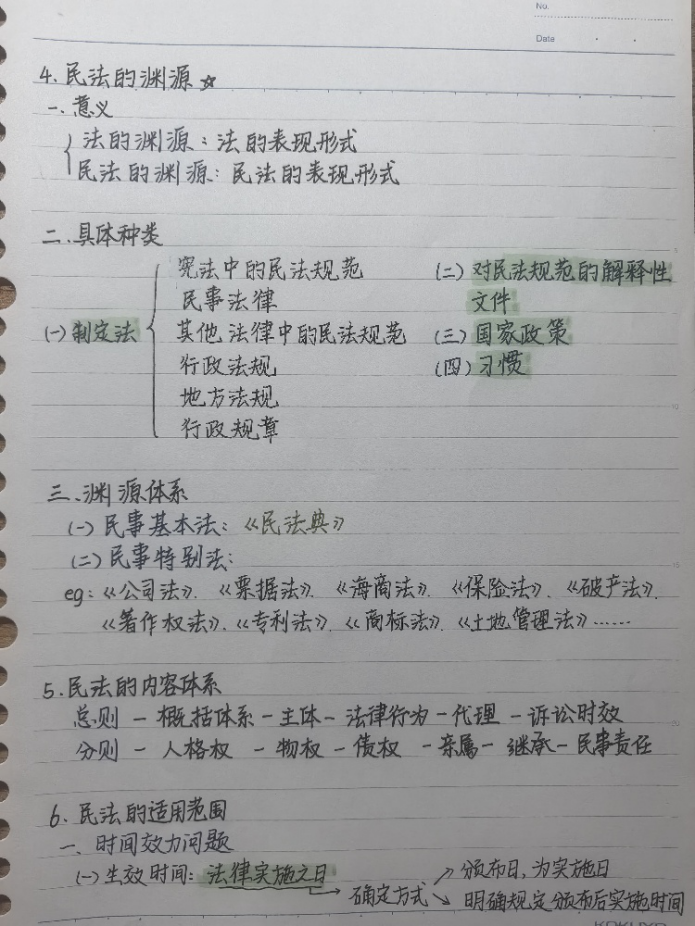 No.
Date
4. 民法的渊源 ☆
一、意义
法的渊源：法的表现形式
民法的渊源：民法的表现形式
二、具体种类
(一) 制定法
宪法中的民法规范
民事法律
其他法律中的民法规范
行政法规
地方法规
行政规章
(二) 对民法规范的解释性
文件
(三) 国家政策
(四) 习惯
三、渊源体系
(一) 民事基本法：《民法典》
(二) 民事特别法：
eg：《公司法》、《票据法》、《海商法》、《保险法》、《破产法》、
《著作权法》、《专利法》、《商标法》、《土地管理法》……
5. 民法的内容体系
总则 — 概括体系 — 主体 — 法律行为 — 代理 — 诉讼时效
分则 — 人格权 — 物权 — 债权 — 亲属 — 继承 — 民事责任
6. 民法的适用范围
一、时间效力问题
(一) 生效时间：法律实施之日 → 确定方式
↗ 颁布日，为实施日
↘ 明确规定颁布后实施时间